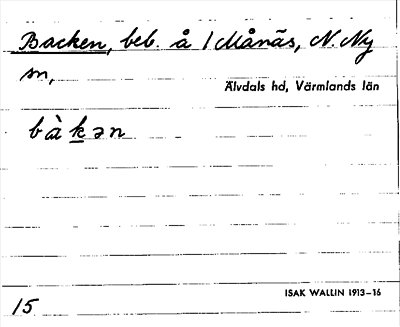 Backen, beb. å 1 Månäs, N. Ny
sn,
Älvdals hd, Värmlands län
bàkən
ISAK WALLIN 1913–16
15